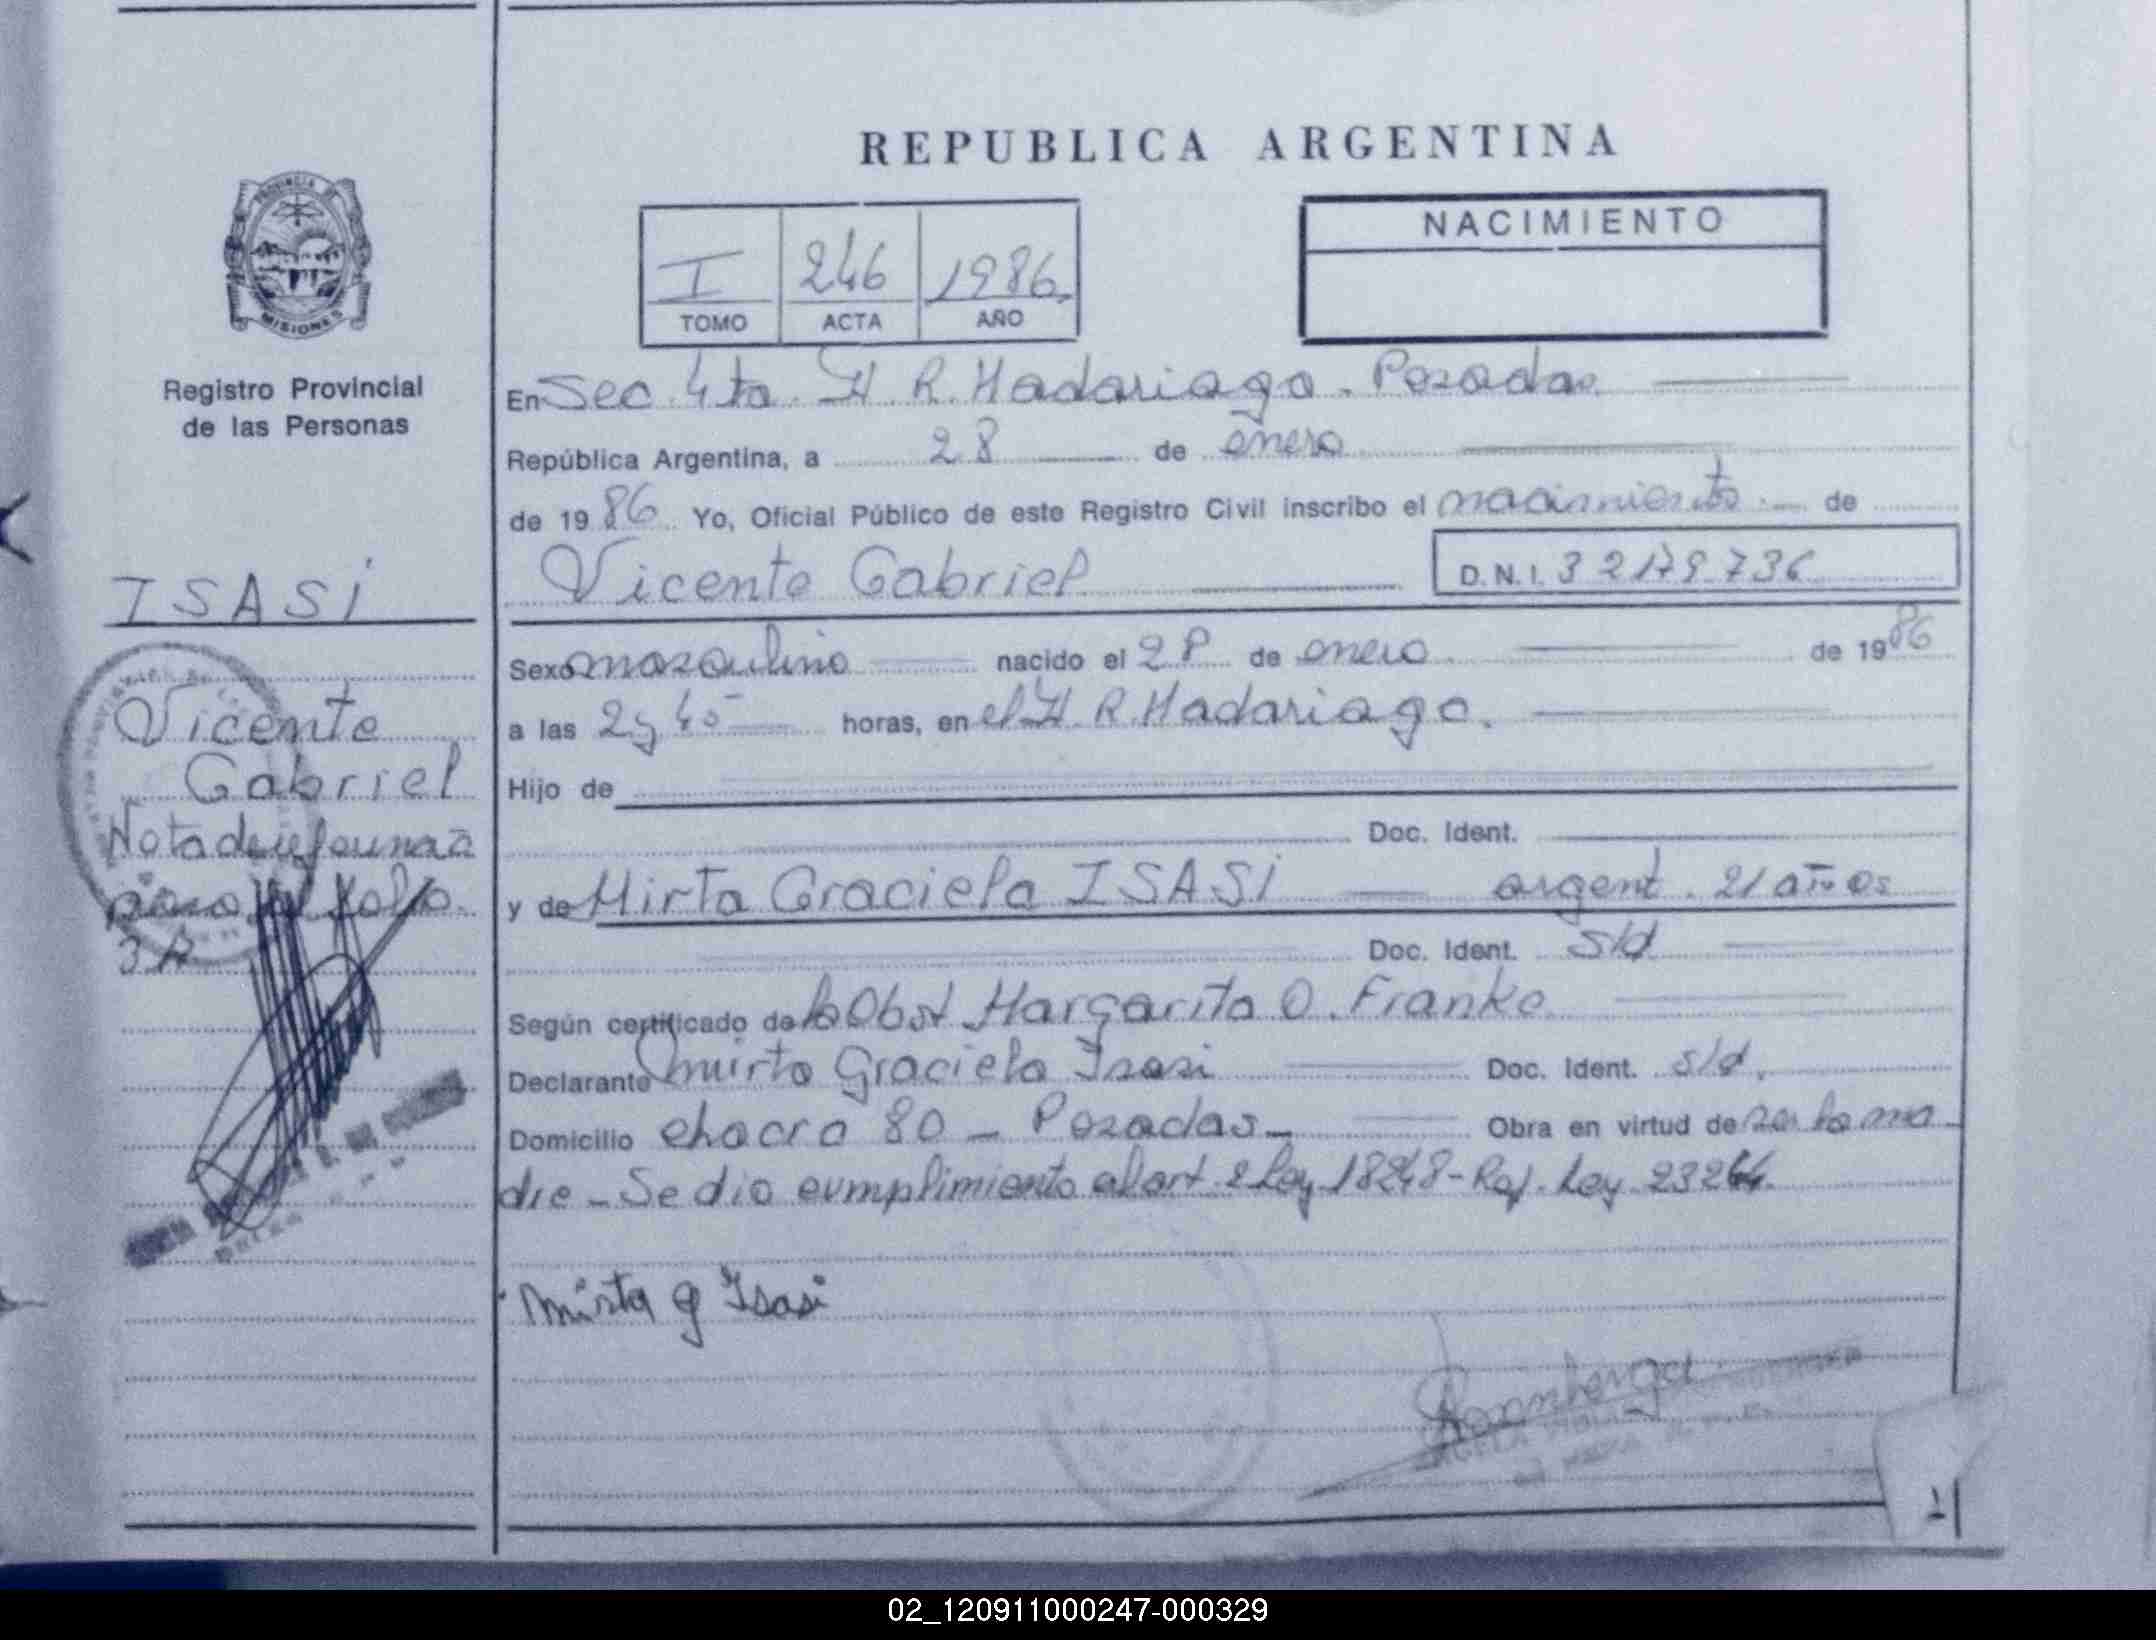 REPUBLICA ARGENTINA
PROVINCIA DE
MISIONES
Registro Provincial
de las Personas
I 246 1986
TOMO ACTA AÑO
NACIMIENTO
En Sec. 4ta. H. R. Madariaga. Posadas.
República Argentina, a 28 de enero
de 1986 Yo, Oficial Público de este Registro Civil inscribo el nacimiento de
Vicente Gabriel D.N.I. 32179736
ISASI
Sexo masculino nacido el 28 de enero de 1986
Vicente
Gabriel
a las 2 y 45 horas, en el H. R. Madariaga.
Hijo de
Doc. Ident.
y de Mirta Graciela ISASI argent. 21 años
Doc. Ident. s/d
Nota de
para folio
Según certificado de la Obst Margarita O. Franke
Declarante Mirta Graciela Isasi Doc. Ident. s/d.
Domicilio chacra 80 - Posadas - Obra en virtud de ser la ma
dre - Se dio cumplimiento al art. 2 Ley 18248 - Ref. Ley 23264.
Mirta g Isasi
02_120911000247-000329